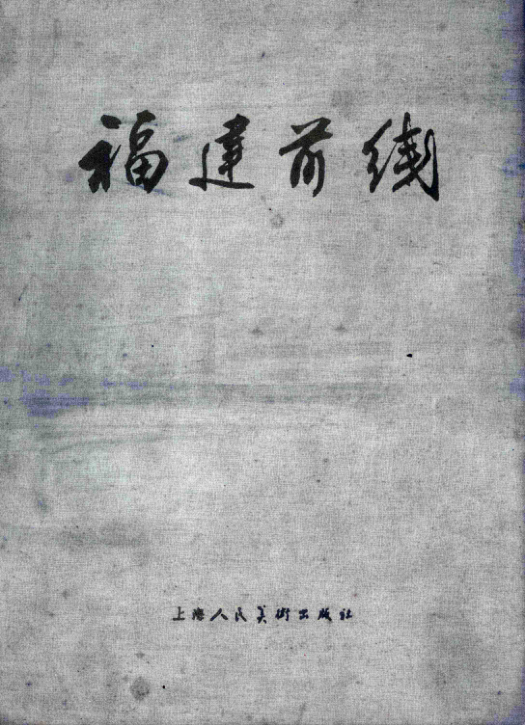 福建前线
上海人民美術出版社